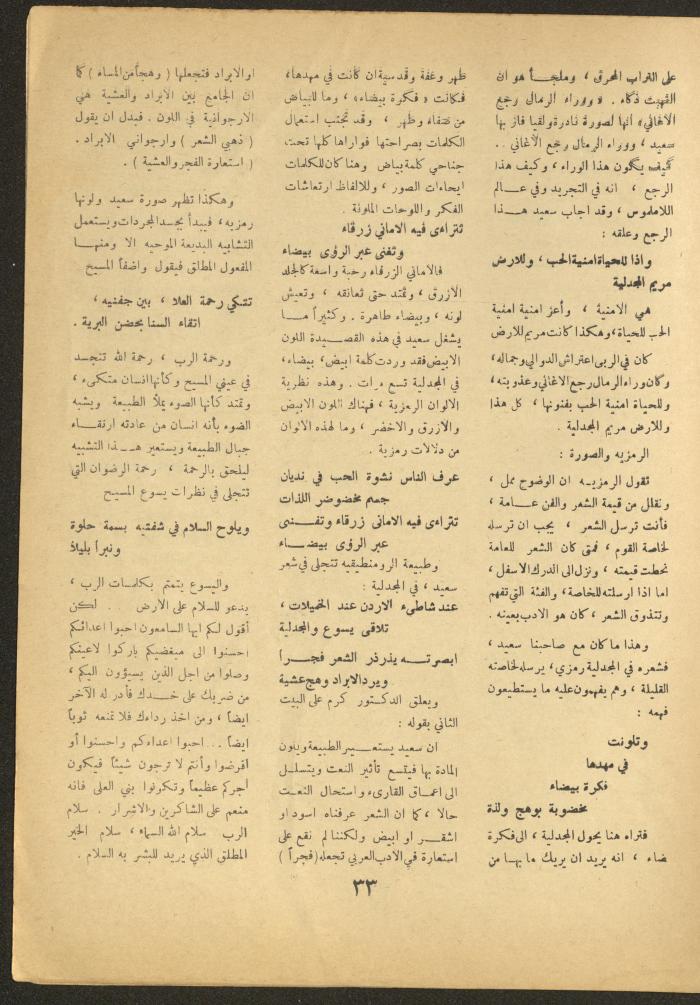 على التراب المحرق ، وملجأ هو ان
التهبت ذكاء . « ووراء الرمال رجع
الاغاني » انها لصورة نادرة ولقيا فاز بها
سعيد ، ووراء الرمال رجع الأغاني ..
كيف يكون هذا الوراء ، وكيف هذا
الرجع ، انه في التجريد وفي عالم
اللاملموس ، وقد اجاب سعيد هذا
الرجع وعلقه :
واذا للحياة امنية الحب ، وللارض
مريم المجدلية
هي الامنية ، وأعز امنية امنية
الحب للحياة، وهكذا كانت مريم للارض
كان في الربى اعتراش الدوالي وجماله،
وكان وراء الرمال رجع الاغاني وعذوبته،
وللحياة امنية الحب بفنونها ، كل هذا
وللارض مريم المجدلية .
الرمزيه والصورة :
تقول الرمزيه ان الوضوح ممل ،
ونقلل من قيمة الشعر والفن عامة ،
فأنت ترسل الشعر ، يجب ان ترسله
لخاصة القوم ، فمتى كان الشعر للعامة
انحطت قيمته ، ونزل الى الدرك الاسفل ،
اما اذا ارسلته للخاصة، والفئة التي تفهم
وتتذوق الشعر ، كان هو الادب بعينه .
وهذا ما كان مع صاحبنا سعيد ،
فشعره في المجدلية رمزي، يرسله لخاصته
القليلة ، وهم يفهمون عليه ما يستطيعون
فهمه :
وتلونت
في مهدها
فكرة بيضاء
مخضوبة بوهج ولذة
فتراه هنا يحول المجدلية ، الى فكرة
ضاء ، انه يريد ان يريك ما بها من
طهر وعفة وقدسية ان كانت في مهدها،
فكانت « فكرة بيضاء» ، وما للبياض
من نقاء وطهر ، وقد تجنب استعمال
الكلمات بصراحتها فواراها كلها تحت
جناحي كلمة بياض وهنا كان للكلمات
ايحاءات الصور ، وللالفاظ ارتعاشات
الفكر واللوحات الملونة .
تتراءى فيه الاماني زرقاء
وتغنى عبر الرؤى بيضاء
فالاماني الزرقاء رحبة واسعة كالجلد
الازرق ، وتمتد حتى تعانقه ، وتعيش
لونه ، وبيضاء طاهرة . وكثيراً ما
يشغل سعيد في هذه القصيدة اللون
الابيض فقد وردت كلمة ابيض، بيضاء،
في المجدلية تسع مرات . وهذه نظرية
الالوان الرمزية ، فهناك اللون الابيض
والازرق والاخضر ، وما لهذه الالوان
من دلالات رمزية .
عرف الناس نشوة الحب في نديان
جسم مخضوضر اللذات
تتراءى فيه الاماني زرقاء وتغنى
عبر الرؤى بيضاء
وطبيعة الرومنطيقيه تتجلى في شعر
سعيد ، في المجدلية :
عند شاطىء الاردن عند الخميلات ،
تلاقى يسوع والمجدلية
ابصرته يذرذر الشعر فجراً
ويرد الابراد وهج عشية
ويعلق الدكتور كرم على البيت
الثاني بقوله :
ان سعيد يستعير الطبيعة ويلون
المادة بها فيتسع تأثير النعت ويتسلل
الى اعماق القارىء واستحال النعت
حالا ، كما ان الشعر عرفناه اسود او
اشقر او ابيض ولكننا لم نقع على
استعارة في الادب العربي تجعله (فجراً )
او الابراد فتجعلها ( وهجاً من المساء ) كما
ان الجامع بين الابراد والعشية هي
الارجوانية في اللون . فبدل ان يقول
( ذهبي الشعر ) وارجواني الابراد .
( استعارة الفجر والعشية ) .
وهكذا تظهر صورة سعيد ولونها
رمزيه ، فيبدأ يجسد المجردات ويستعمل
التشابيه البديعة الموحيه الا ومنها
المفعول المطلق فيقول واصفاً المسيح
تتكي رحمة العلا ، بين جفنيه ،
اتقاء السنا بحضن البرية .
ورحمة الرب ، رحمة الله تتجسد
في عيني المسيح وكأنها انسان متكىء ،
وتمتد كأنها الضوء يملأ الطبيعة ويشبه
الضوء بأنه انسان من عادته ارتقاء
جبال الطبيعة ويستعير هذا التشبيه
ليلحق بالرحمة ، رحمة الرضوان التي
تتجلى في نظرات يسوع المسيح
ويلوح السلام في شفتيه بسمة حلوة
ونبراً بليلا
واليسوع يتمتم بكلمات الرب ،
يدعو للسلام على الأرض . لكن
أقول لكم ايها السامعون احبوا اعدائكم
احسنوا الى مبغضيكم باركوا لاعنيكم
وصلوا من اجل الذين يسيؤون اليكم ،
من ضربك على خدك فأدر له الآخر
ايضاً ، ومن اخذ رداءك فلا تمنعه ثوباً
ايضاً .. احبوا اعداءكم واحسنوا أو
اقرضوا وأنتم لا ترجون شيئاً فيكون
أجركم عظيماً وتكونوا بني العلى فانه
منعم على الشاكرين والاشرار . سلام
الرب سلام الله السماء ، سلام الخير
المطلق الذي يريد للبشر به السلام .
٣٣